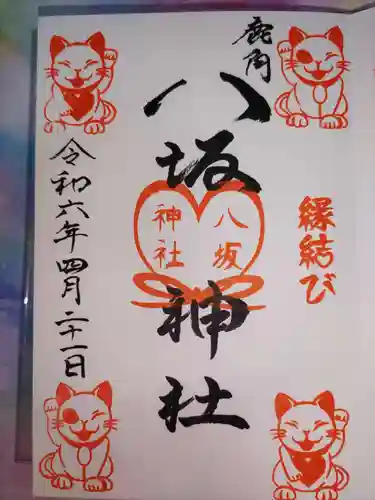 縁結び
鹿角
八坂神社
八坂
神社
令和六年四月二十一日